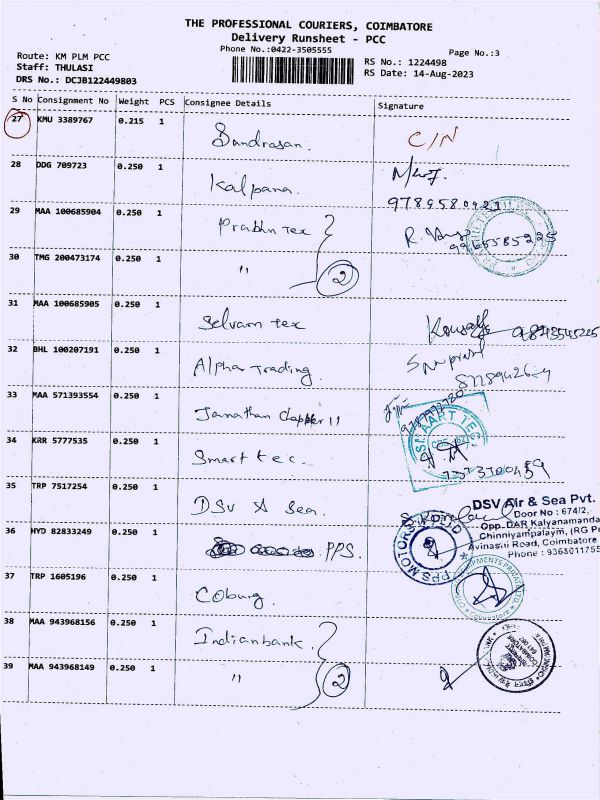 THE PROFESSIONAL COURIERS, COIMBATORE
Delivery Runsheet - PCC
Phone No.:0422-3505555
Page No.:3
Route: KM PLM PCC
Staff: THULASI
DRS No.: DCJB122449803
RS No.: 1224498
RS Date: 14-Aug-2023
S No Consignment No Weight PCS Consignee Details Signature
27 KMU 3389767 0.215 1 Sundrasan. C/N
28 DDG 709723 0.250 1 Kalpana.
29 MAA 100685904 0.250 1 Prabhu Tex R.
30 TMG 200473174 0.250 1 " 2
31 MAA 100685905 0.250 1 Selvam tex
32 BHL 100207191 0.250 1 Alpha Trading.
33 MAA 571393554 0.250 1
34 KRR 5777535 0.250 1 Smart tec. SMAART TEC
35 TRP 7517254 0.250 1 DSV A Sea.
DSV Air & Sea Pvt.
Door No : 674/2,
Opp. DAR Kalyanamanda
Chinniyampalaym, IRG P
Avinashi Road, Coimbatore
Phone : 9365011755
36 HYD 82833249 0.250 1 PPS. PPS MOTORS
37 TRP 1605196 0.250 1 Coburg.
38 MAA 943968156 0.250 1 Indianbank.
39 MAA 943968149 0.250 1 " 2